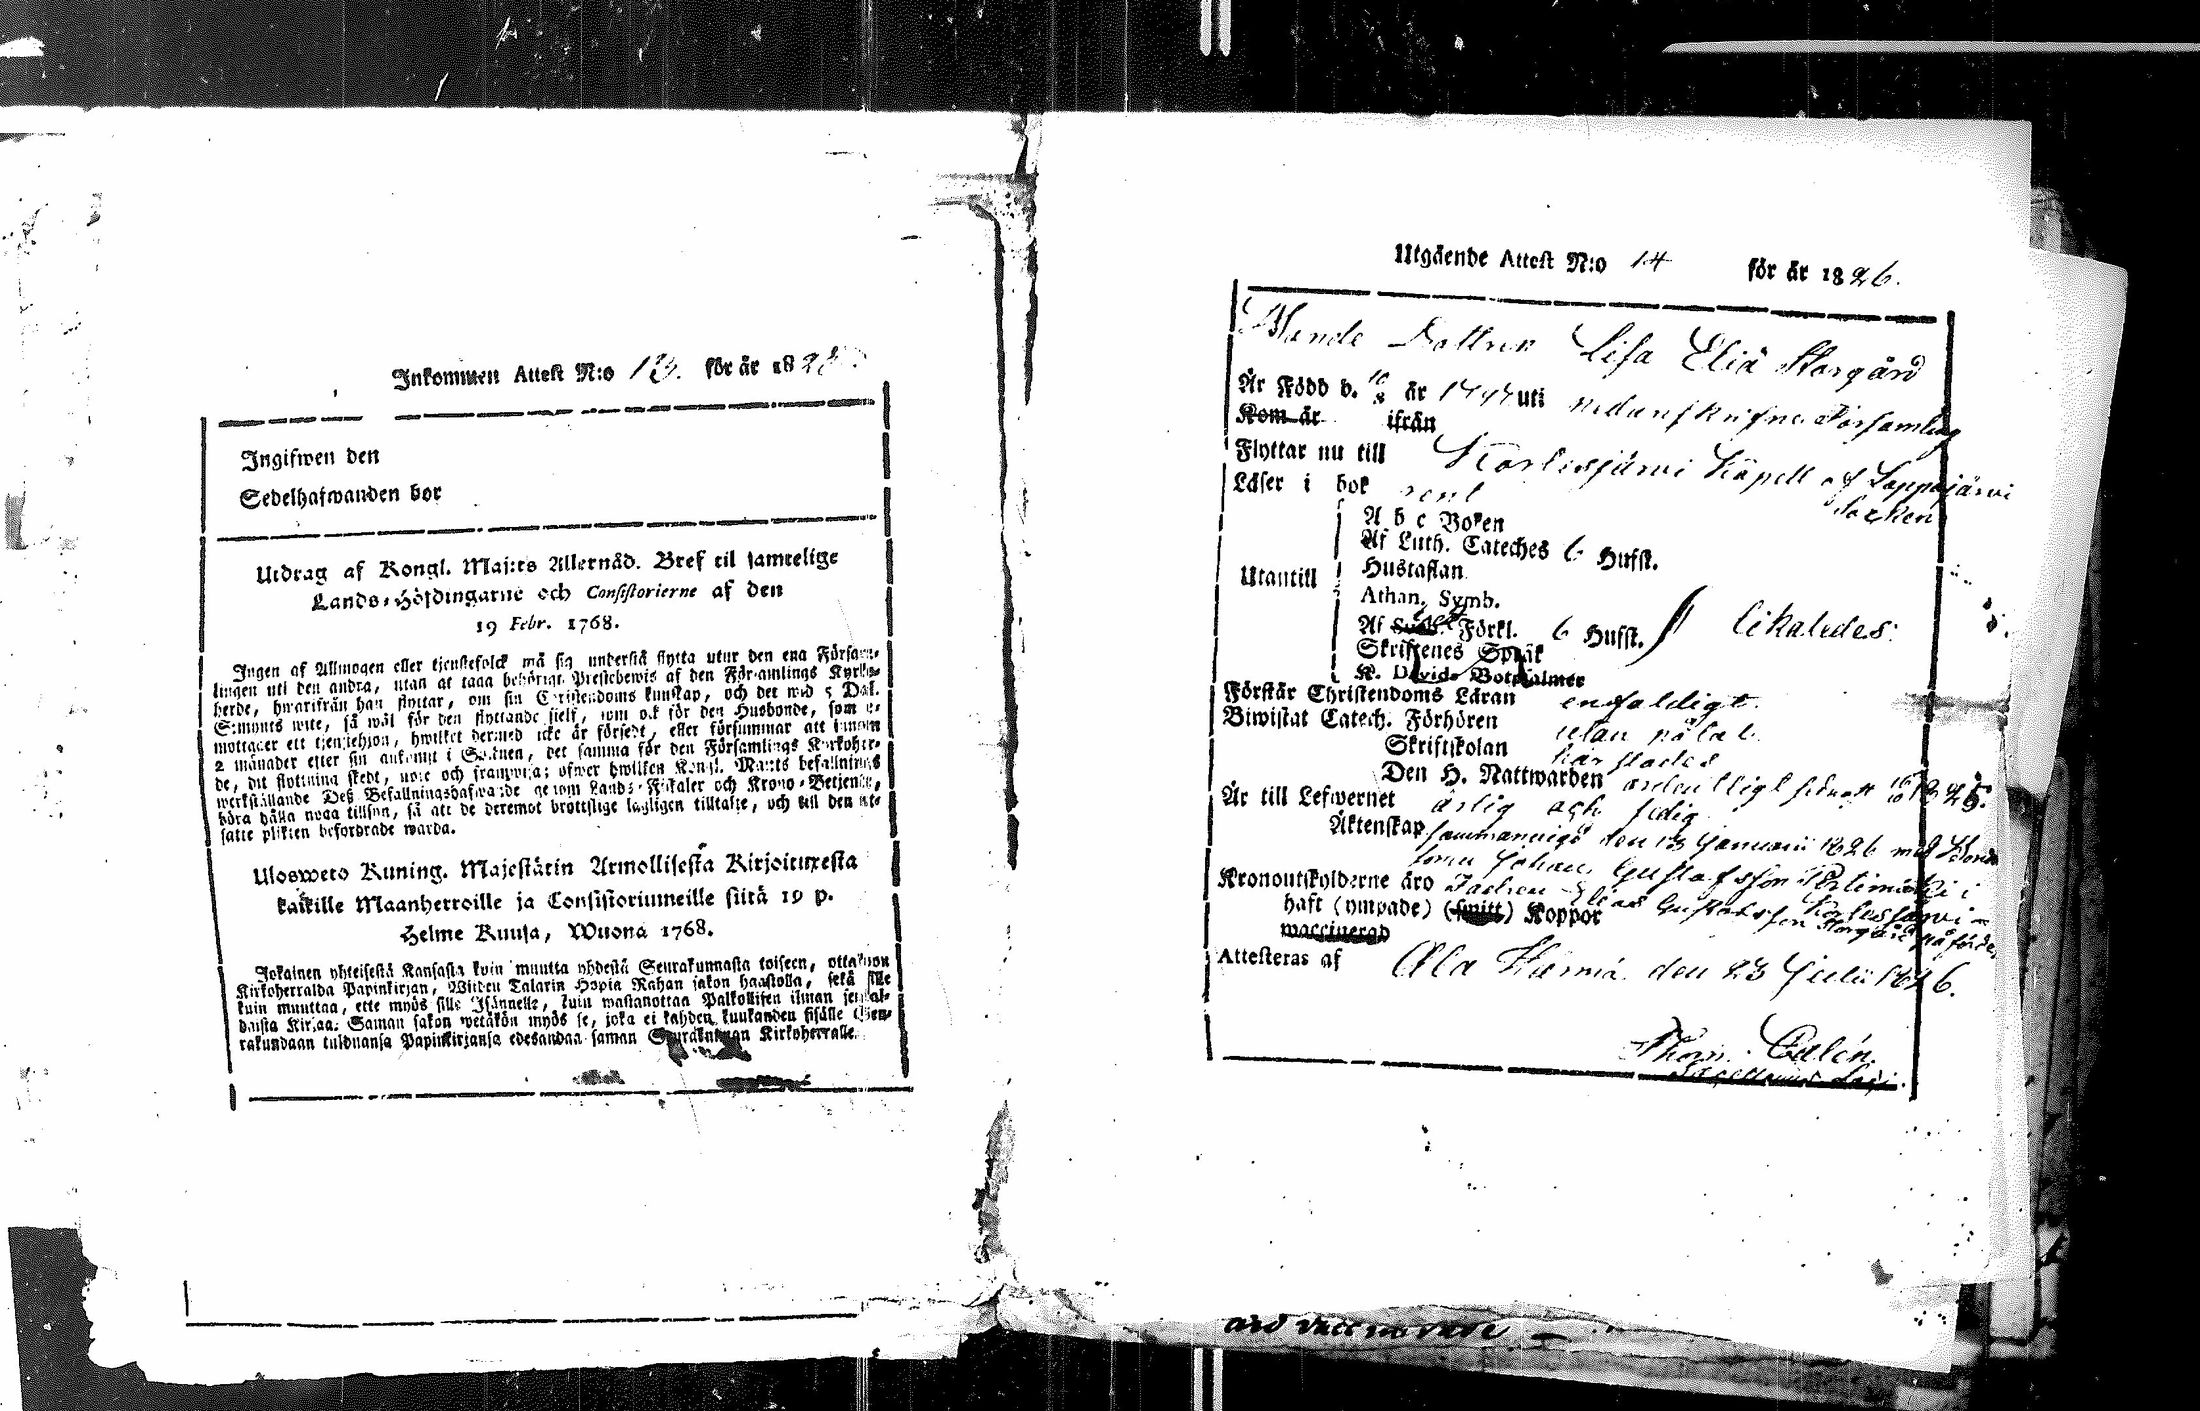 Inkommen Attest N:o 13. för år 182
Ingifwen den
Sedelhafwanden bor
Utdrag af Kongl. Maj:ts Allernåd. Bref til samtelige
Lands-Höfdingarne och Consistorierne af den
19 Febr. 1768.
Ingen af Allmogen eller tjenstefolck må sig understå flytta utur den ena Försam-
lingen uti den andra, utan at taga behörigt Prestebewis af den Församlings Kyrko-
herde, hwarifrån han flyttar, om sin Christendoms kunskap, och det wid 5 Dal.
S:mynts wite, så wäl för den flyttande sielf, som ock för den Husbonde, som e-
mottager ett tjenstehjon, hwilket dermed icke är försedt, eller försummar att innom
2 månader efter sin ankomst i Socknen, det samma för den Församlings Kyrkoher-
de, dit flyttning skedt, upte och framwisa; öfwer hwilken Kongl. Maj:ts befallnings
werkställande Deß Befallningshafwande genom Lands-Fiskaler och Krono-Betjente,
böra hålla noga tillsyn, så att de deremot brottslige lagligen tilltalte, och till den ut-
satte plikten befordrade warda.
Ulosweto Kuning. Majestätin Armollisesta Kirjoituxesta
kaikille Maanherroille ja Consistoriumeille siitä 19 p.
Helme Kuusa, Wuona 1768.
Jokainen yhteisestä Kansasta kuin muutta yhdestä Seurakunnasta toiseen, ottakoon
Kirkoherralda Papinkirjan, Wiiden Talarin Hopia Rahan sakon haastolla, sekä sille
kuin muuttaa, ette myös sille Isännelle, kuin wastanottaa Palkollisen ilman
daista Kirjaa. Saman sakon wetäkön myös se, joka ei kahden kuukauden sisälle Seu-
rakundaan tulduansa Papinkirjansa edesandaa saman Seurakunnan Kirkoherralle.
Utgående Attest N:o 14 för år 1826.
Bonde Dottren Lisa Eliæ Storgård
Är Född d. 10/8 år 1797 uti nedanskrifne Församling
Kom år ifrån
Flyttar nu till Kortesjärvi Kapell af Lappajärvi
Socken
Läser i bok rent
A b c Boken
Af Luth. Cateches 6 Hufst.
Hustaflan
Utantill
Athan. Symb.
Af Förkl. 6 Hufst. likaledes
Skriftenes Språk
K. Davids Botpsalmer
Förstår Christendoms Läran enfaldigt.
Biwistat Catech. Förhören utan påtal.
Skriftskolan härstädes
Den H. Nattwarden ordentligt 1825.
Är till Lefwernet ärlig och sedig
Äktenskap sammanvigd den 13 Januarii 1826 med Bonde
sonen Johan Gustafsson i
Kortesjärvi
Kronoutskylderne äro Elias Gustafsson Storgård påförde
haft (ympade) (smitt) Koppor
waccinerad
Attesteras af Ala Härmä den 23 Julii 1826.
Thom.
ard vaccinerade